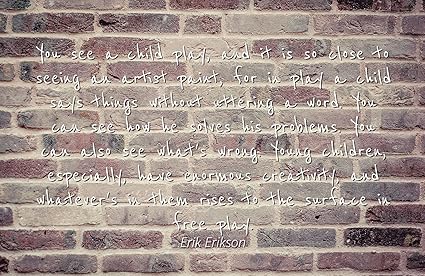 You see a child play, and it is so close to
seeing an artist paint, for in play a child
says things without uttering a word. You
can see how he solves his problems. You
can also see what's wrong. Young children,
especially, have enormous creativity, and
whatever's in them rises to the surface in
free play.
Erik Erikson